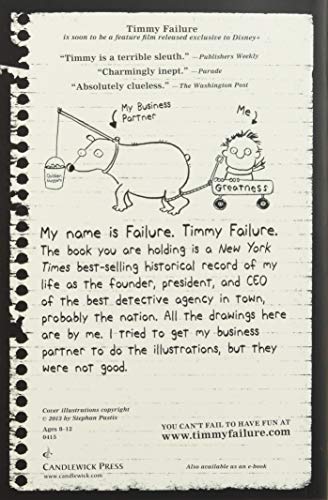 Timmy Failure
is soon to be a feature film released exclusive to Disney+
“Timmy is a terrible sleuth.” —Publishers Weekly
“Charmingly inept.” —Parade
“Absolutely clueless.” —The Washington Post
My Business
Partner
Me
Chicken
Nuggets
Greatness
My name is Failure. Timmy Failure.
The book you are holding is a New York
Times best-selling historical record of my
life as the founder, president, and CEO
of the best detective agency in town,
probably the nation. All the drawings here
are by me. I tried to get my business
partner to do the illustrations, but they
were not good.
Cover illustrations copyright
© 2013 by Stephan Pastis
Ages 8–12
0415
YOU CAN'T FAIL TO HAVE FUN AT
www.timmyfailure.com
CANDLEWICK PRESS
www.candlewick.com
Also available as an e-book